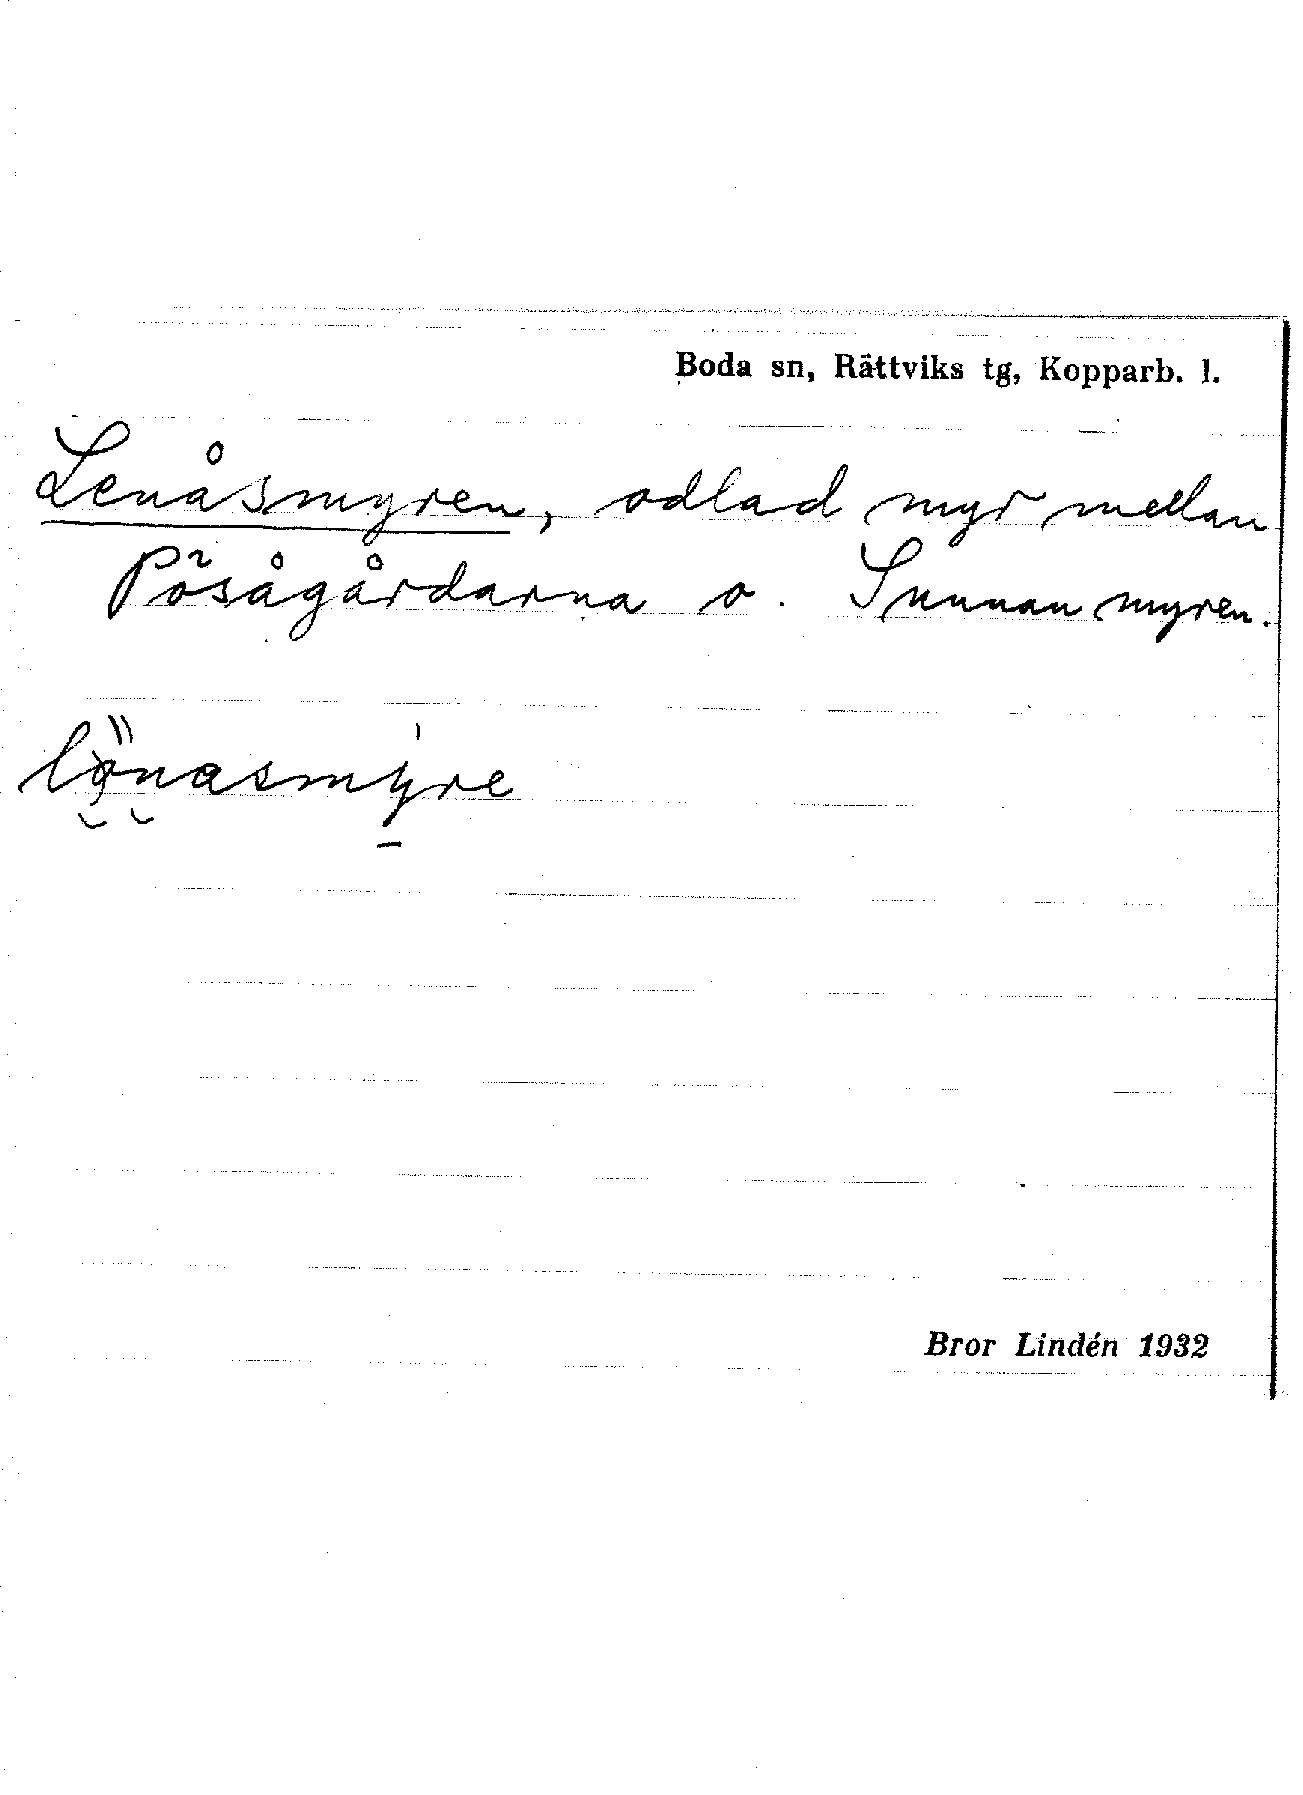 Boda sn, Rättviks tg, Kopparb. l.
Lenåsmyren, odlad myr mellan
Pösågårdarna o. Sunnanmyren.
lönasmyre
Bror Lindén 1932